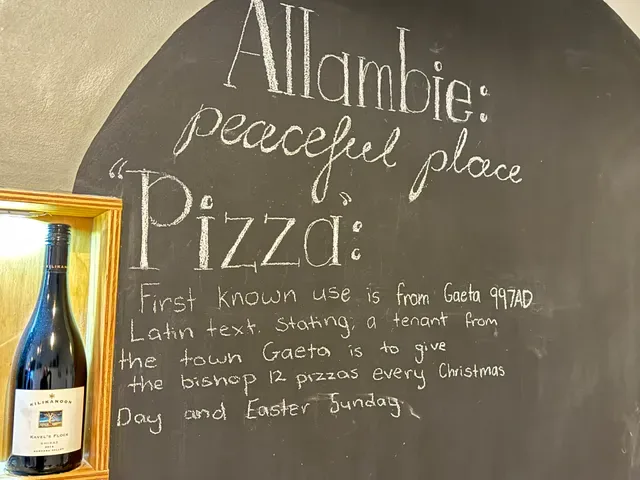 Allambie:
peaceful place
"Pizza":
First known use is from Gaeta 997AD
Latin text. Stating, a tenant from
the town Gaeta is to give
the bishop 12 pizzas every Christmas
Day and Easter Sunday
KILIKANOON
KILIKANOON
SHIRAZ